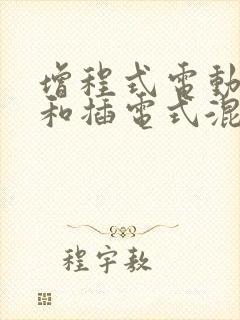 增程式電動
和插電式混
程宇敖